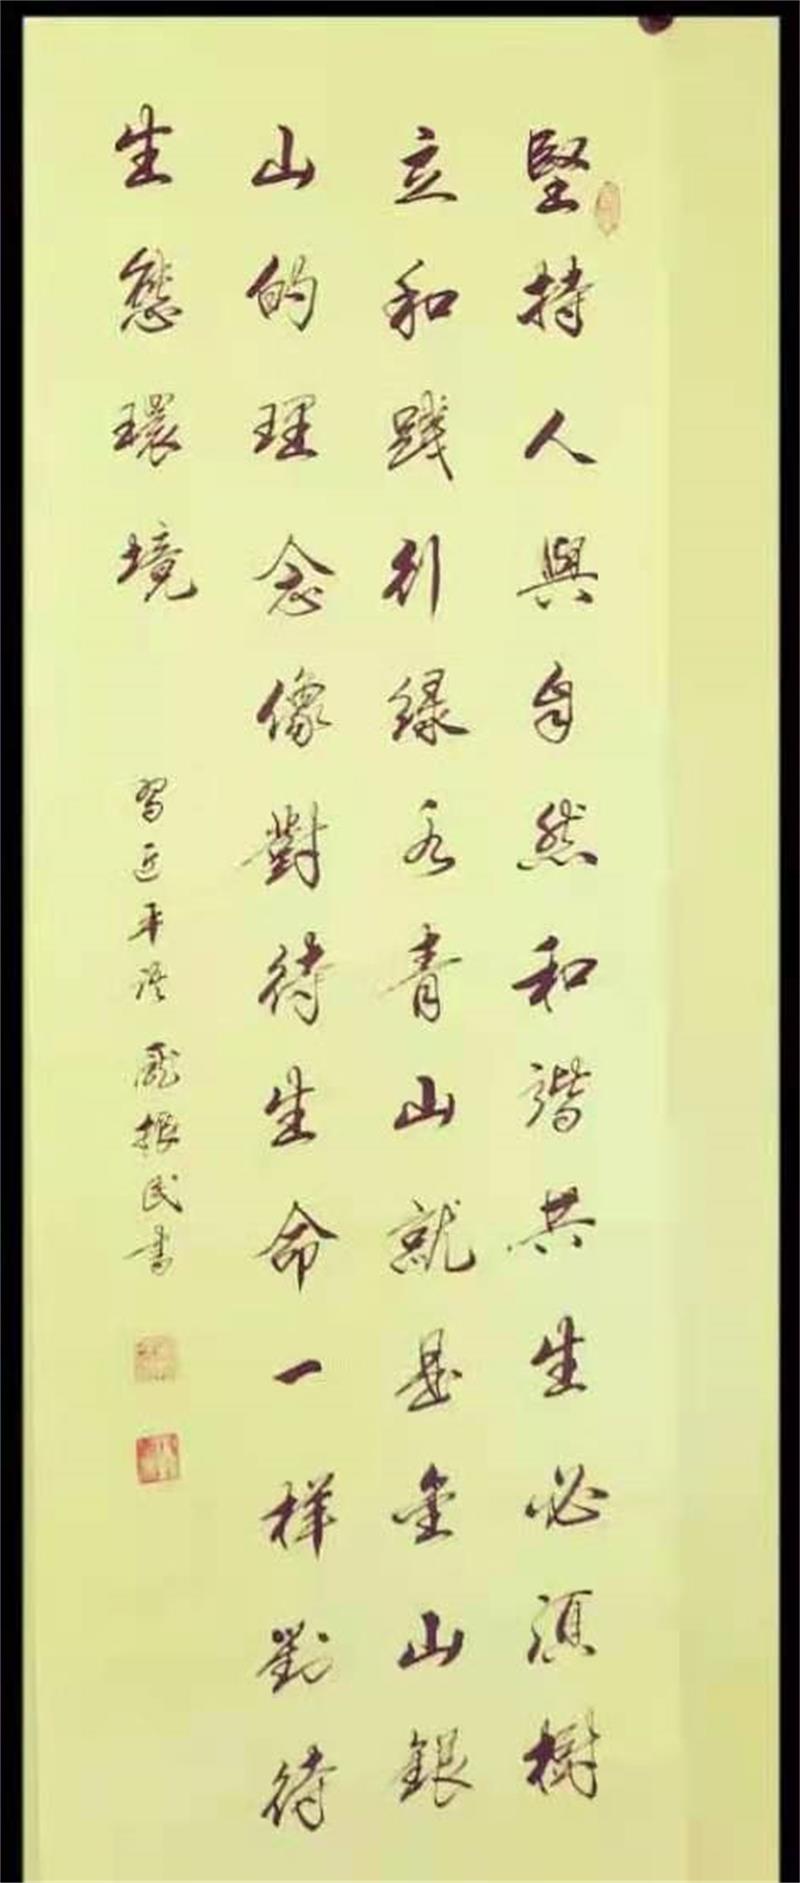 堅持人與自然和諧共生必須樹
立和踐行緑水青山就是金山銀
山的理念像對待生命一樣對待
生態環境
習近平语 龐振民書